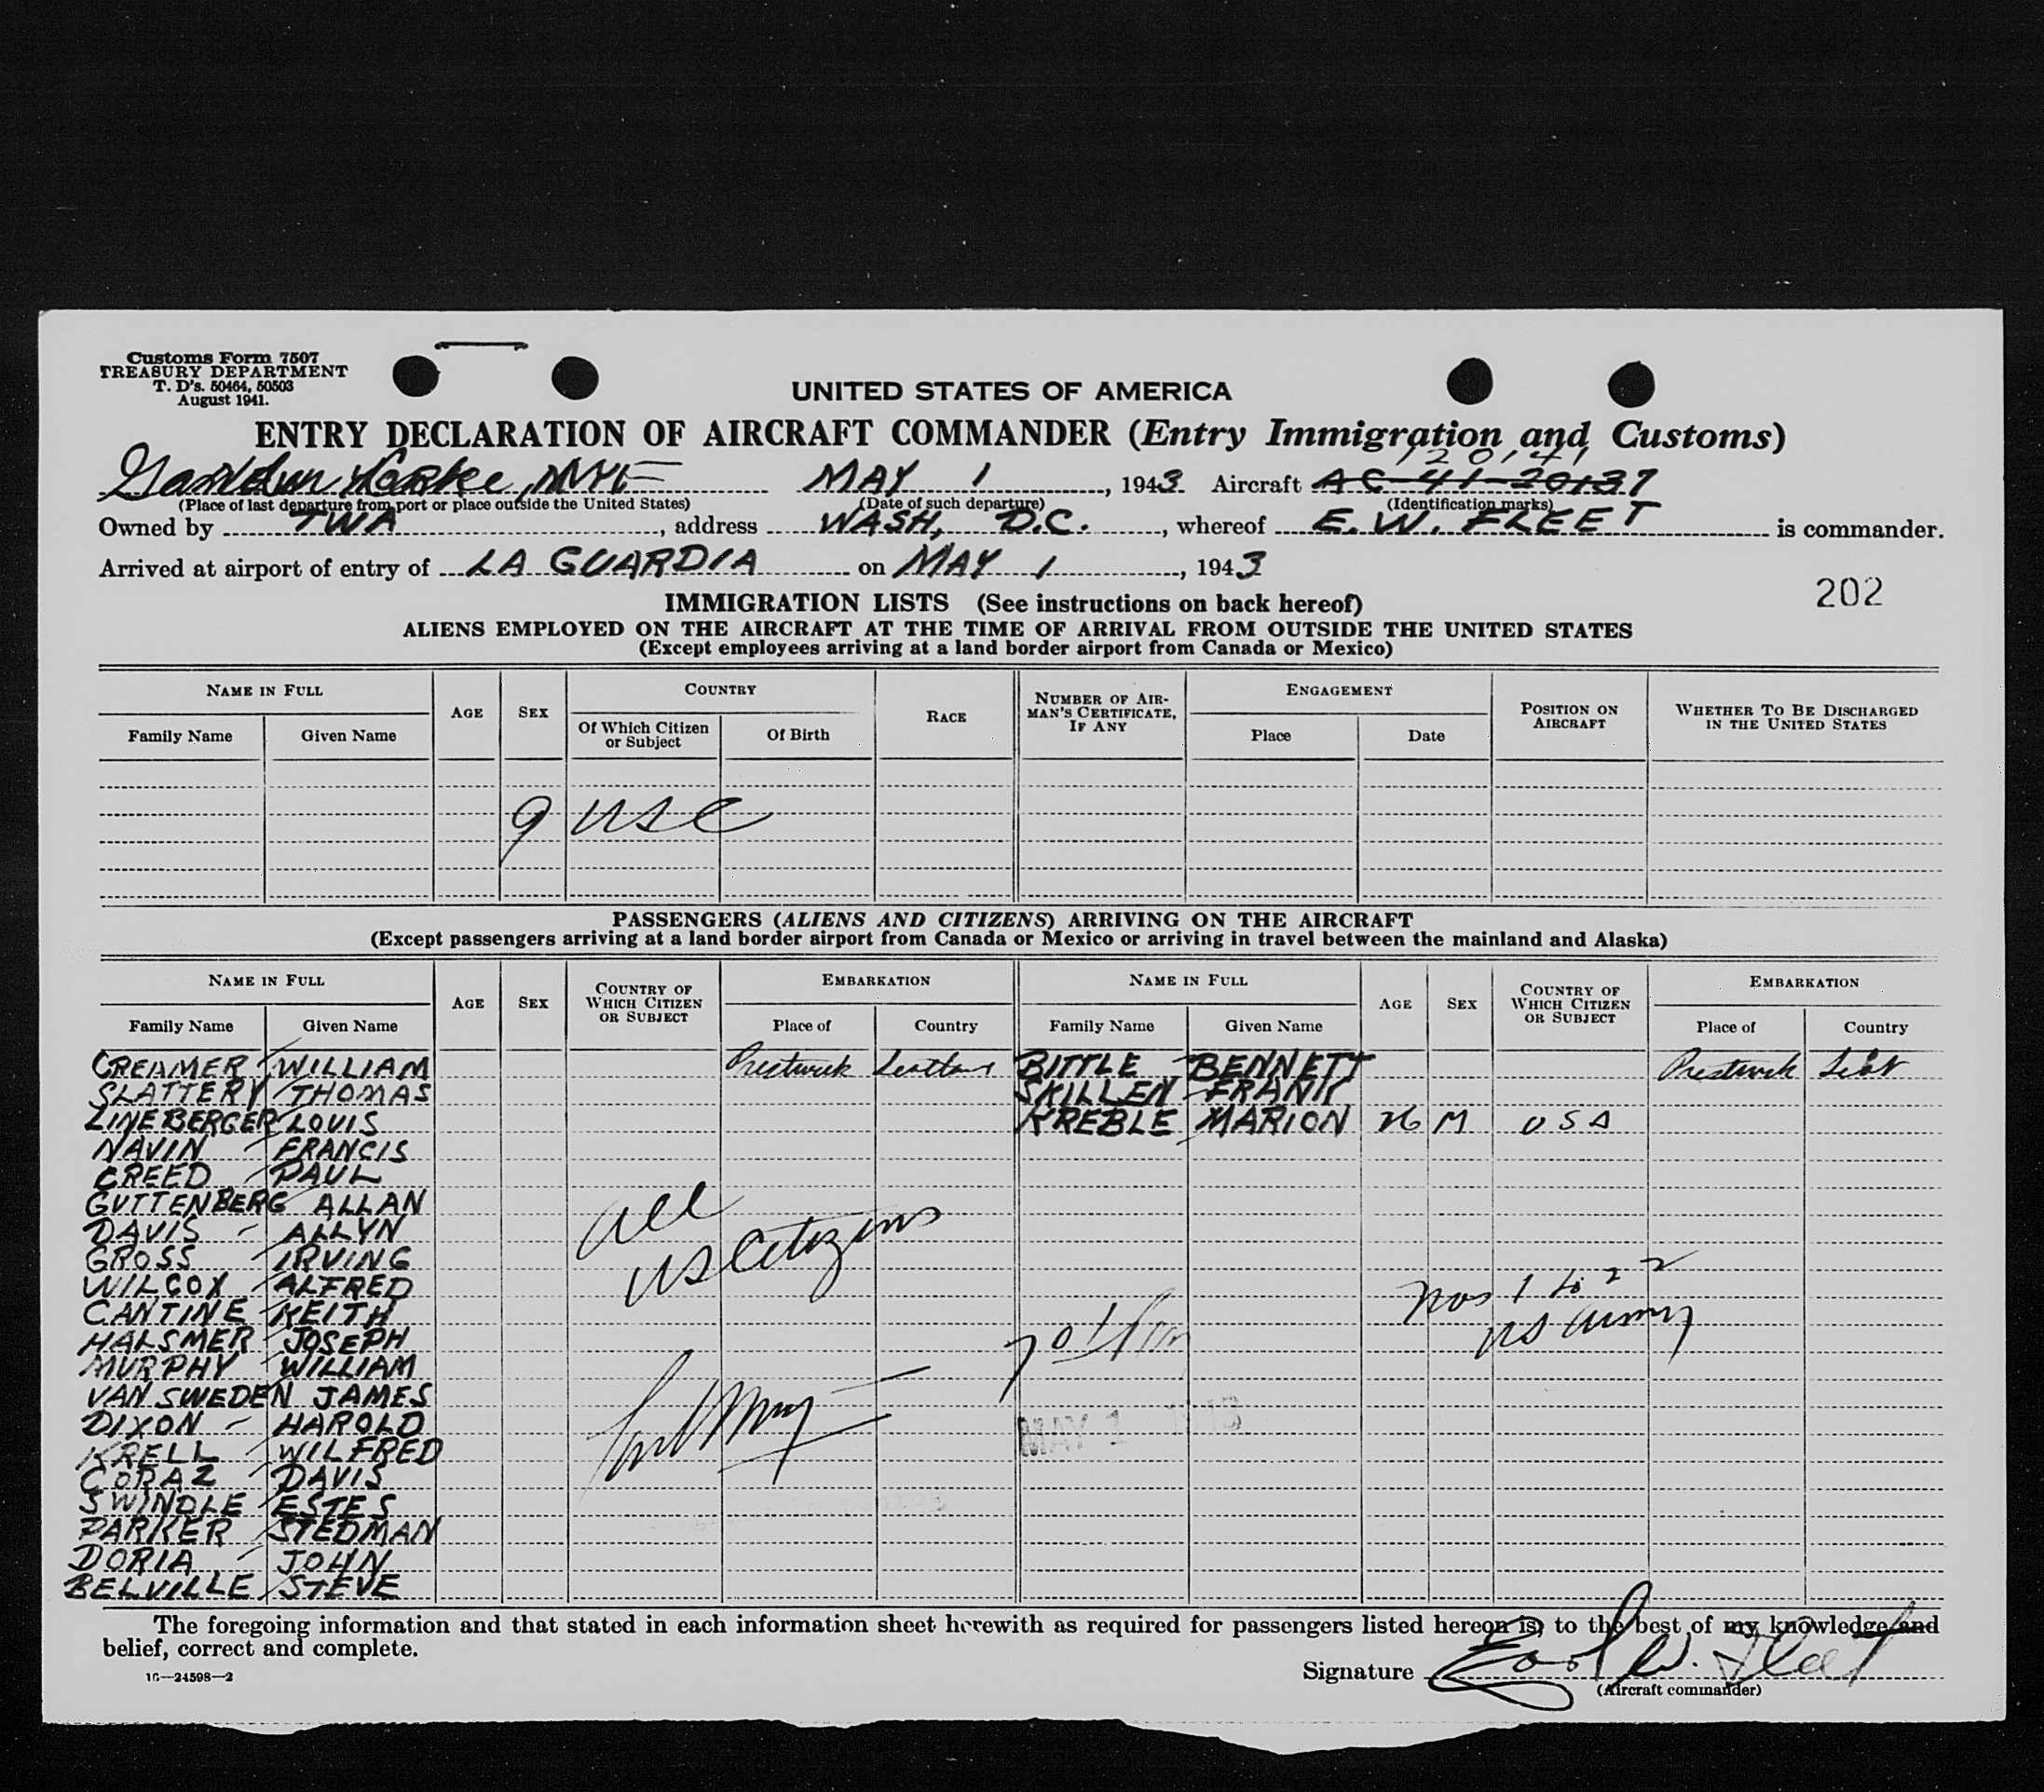 Customs Form 7507
TREASURY DEPARTMENT
T. D's. 50464, 50503
August 1941.
UNITED STATES OF AMERICA
ENTRY DECLARATION OF AIRCRAFT COMMANDER (Entry Immigration and Customs)
120141
MAY 1, 1943 Aircraft AC-41-20137
(Place of last departure from port or place outside the United States) (Date of such departure) (Identification marks)
Owned by TWA, address WASH, D.C., whereof E. W. FLEET is commander.
Arrived at airport of entry of LA GUARDIA on MAY 1, 1943
202
IMMIGRATION LISTS (See instructions on back hereof)
ALIENS EMPLOYED ON THE AIRCRAFT AT THE TIME OF ARRIVAL FROM OUTSIDE THE UNITED STATES
(Except employees arriving at a land border airport from Canada or Mexico)
NAME IN FULL AGE SEX COUNTRY RACE NUMBER OF AIRMAN'S CERTIFICATE, IF ANY ENGAGEMENT POSITION ON AIRCRAFT WHETHER TO BE DISCHARGED IN THE UNITED STATES
Family Name Given Name Of Which Citizen or Subject Of Birth Place Date
9 USC
PASSENGERS (ALIENS AND CITIZENS) ARRIVING ON THE AIRCRAFT
(Except passengers arriving at a land border airport from Canada or Mexico or arriving in travel between the mainland and Alaska)
NAME IN FULL AGE SEX COUNTRY OF WHICH CITIZEN OR SUBJECT EMBARKATION NAME IN FULL AGE SEX COUNTRY OF WHICH CITIZEN OR SUBJECT EMBARKATION
Family Name Given Name Place of Country Family Name Given Name Place of Country
CREAMER WILLIAM Prestwick Scotland BITTLE BENNETT Prestwick Scot
SLATTERY THOMAS SKILLEN FRANK
LINEBERGER LOUIS KREBLE MARION 26 M USA
NAVIN FRANCIS
CREED PAUL
GUTTENBERG ALLAN
DAVIS ALLYN
GROSS IRVING
WILCOX ALFRED
CANTINE KEITH
HALSMER JOSEPH
MURPHY WILLIAM
VAN SWEDEN JAMES
DIXON HAROLD
KRELL WILFRED
CORAZ DAVIS
SWINDLE ESTES
PARKER STEDMAN
DORIA JOHN
BELVILLE STEVE
all
US Citizens
Nos 1 to 22
US Army
MAY 1 1943
The foregoing information and that stated in each information sheet herewith as required for passengers listed hereon is, to the best of my knowledge and
belief, correct and complete.
16—24598—2
Signature Earl W. Fleet
(Aircraft commander)